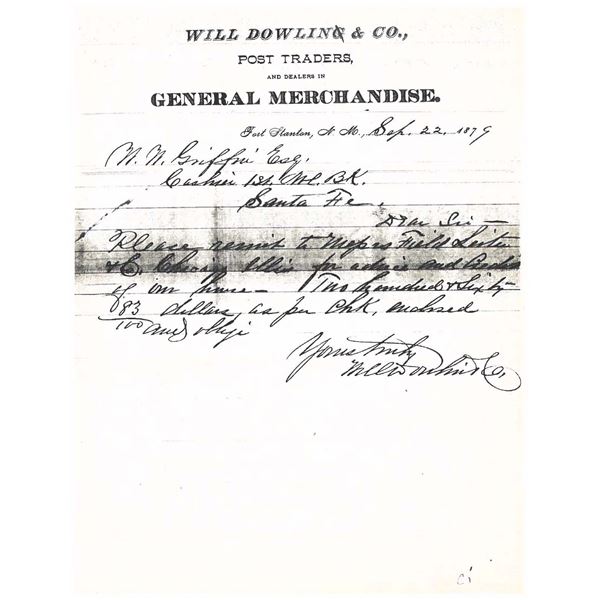 WILL DOWLING & CO.,
POST TRADERS,
AND DEALERS IN
GENERAL MERCHANDISE.
Fort Stanton, N. M., Sep. 22, 1879
W. W. Griffin Esq.
Cashier 1st. Bk.
Santa Fe.
Dear Sir —
Please remit to Messrs Field Leiter
& Co. Chicago Ills for advice and
of our house — Two hundred & Sixty
83/100 dollars, as per Chk, enclosed
and oblige
Yours truly
Will Dowling & Co.